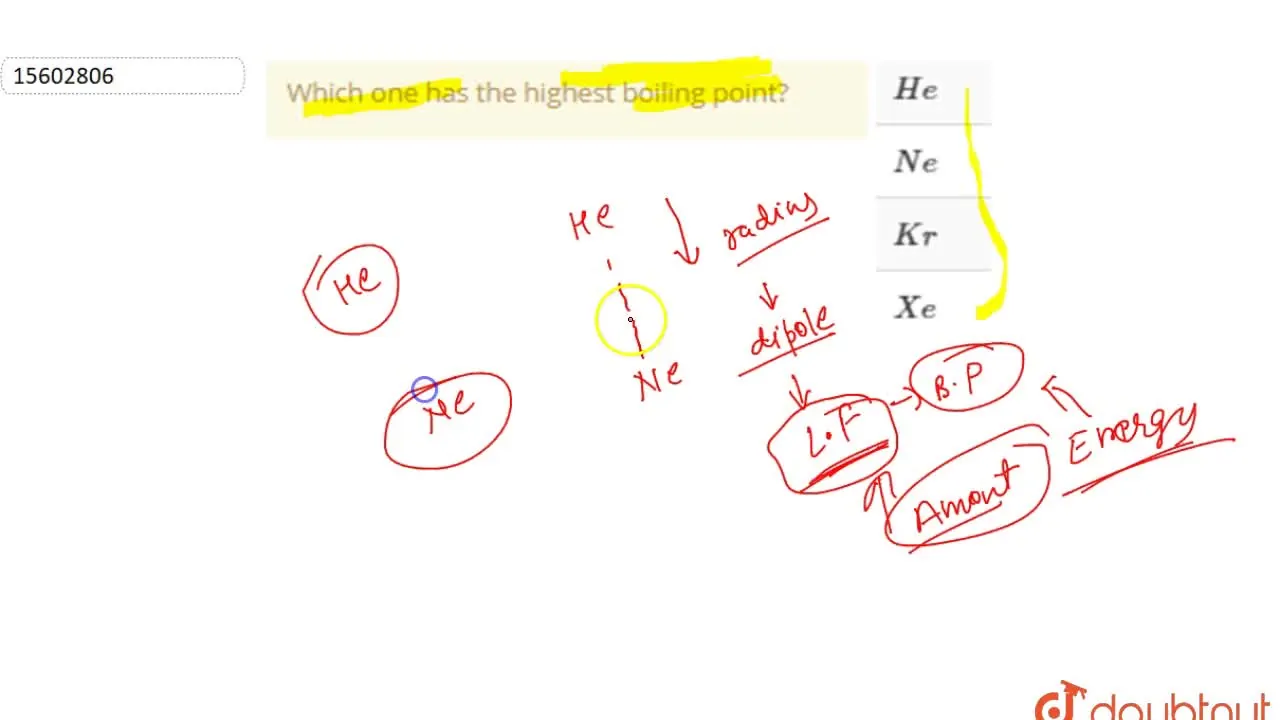 15602806
Which one has the highest boiling point?
He
Ne
Kr
Xe
He
radius
He
dipole
Ne
B.P
Ne
L.F
Energy
Amont
doubtnut